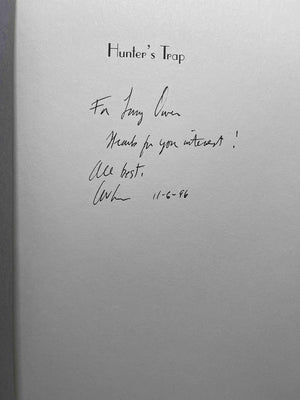 Hunter's Trap
For Larry Owen
Thanks for your interest!
All best,
11-6-96